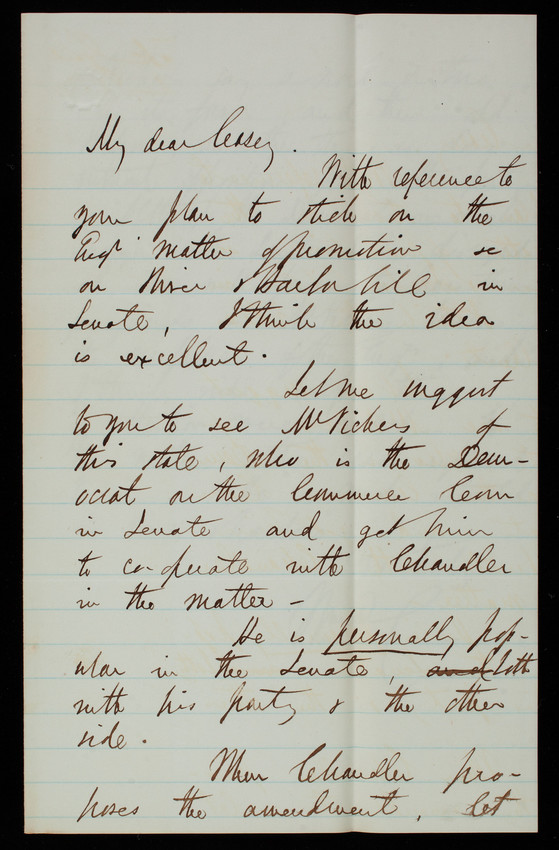 My dear Casey.
With reference to
your plan to stick on the
Engr matter of promotion &c
on River & Harbor bill in
Senate, I think the idea
is excellent.
Let me suggest
to you to see Mr Vickers of
this state, who is the Dem-
ocrat on the Commerce Com
in Senate and get him
to co-operate with Chandler
in the matter –
He is personally pop-
ular in the Senate, and both
with his party & the other
side.
When Chandler pro-
poses the amendment, let